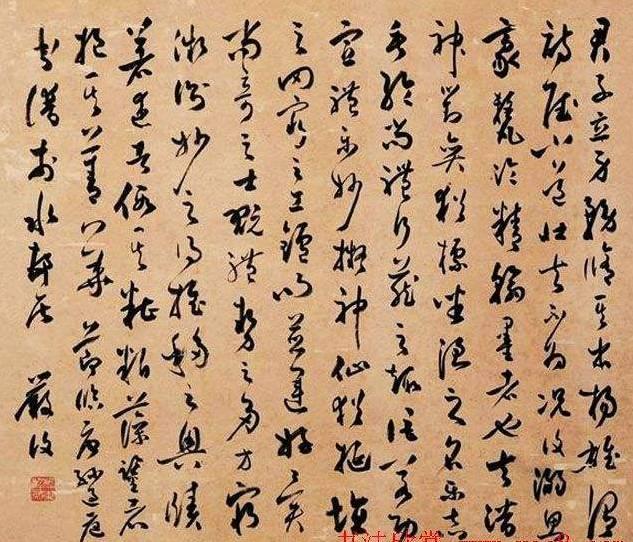 君子立身務修其本揚雄謂
詩賦小道壯夫不為況復溺思
豪氂淪精翰墨者也夫潛
神對奕猶標坐隱之名樂志
垂綸尚體行藏之趣詎若功
宣禮樂妙擬神仙猶埏埴
之罔窮與工鑪而並運好異
尚奇之士翫體勢之多方窮
微測妙之夫得推移之奧賾
著述者假其糟粕藻鑒者
挹其菁華 節臨唐孫過庭
書譜於水軒 嚴復
书法欣赏